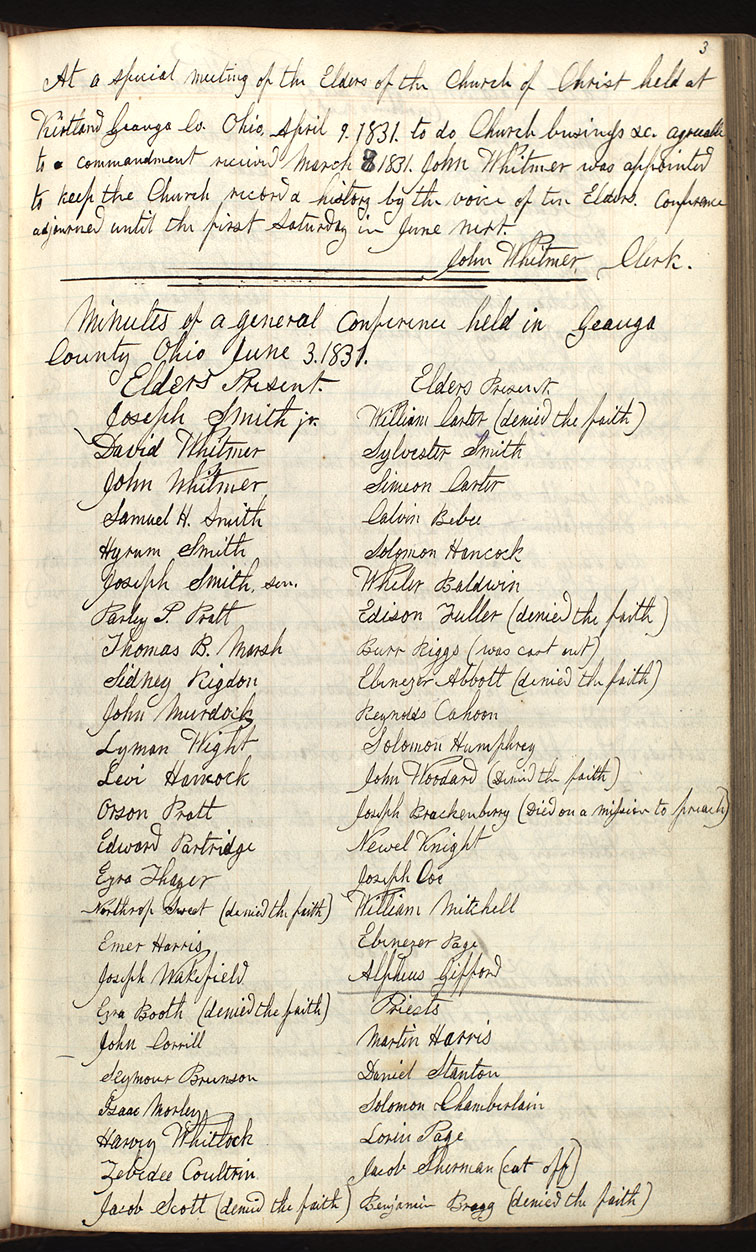 3
At a special meeting of the Elders of the Church of Christ held at
Kirtland Geauga Co. Ohio, April 9. 1831. to do Church business &c. agreeable
to a commandment received March 8 1831. John Whitmer was appointed
to keep the Church record & history by the voice of ten Elders. Conference
adjourned until the first Saturday in June next.
John Whitmer, Clerk.
Minutes of a general Conference held in Geauga
County Ohio June 3. 1831.
Elders Present.
Joseph Smith jr.
David Whitmer
John Whitmer
Samuel H. Smith
Hyrum Smith
Joseph Smith, sen.
Parley P. Pratt
Thomas B. Marsh
Sidney Rigdon
John Murdock
Lyman Wight
Levi Hancock
Orson Pratt
Edward Partridge
Ezra Thayer
Northrop Sweet (denied the faith)
Emer Harris
Joseph Wakefield
Ezra Booth (denied the faith)
John Corrill
Seymour Brunson
Isaac Morley
Harvey Whitlock
Zebidee Coultrin
Jacob Scott (denied the faith)
Elders Present
William Carter (denied the faith)
Sylvester Smith
Simeon Carter
Calvin Bebee
Solomon Hancock
Wheler Baldwin
Edison Fuller (denied the faith)
Burr Riggs (was cast out)
Ebenezer Abbott (denied the faith)
Reynolds Cahoon
Solomon Humphrey
John Woodard (denied the faith)
Joseph Brackenberry (Died on a mission to preach)
Newel Knight
Joseph Coe
William Mitchell
Ebenezer Page
Alpheus Gifford
Priests
Martin Harris
Daniel Stanton
Solomon Chamberlain
Lorin Page
Jacob Sherman (cut off)
Benjamin Bragg (denied the faith)